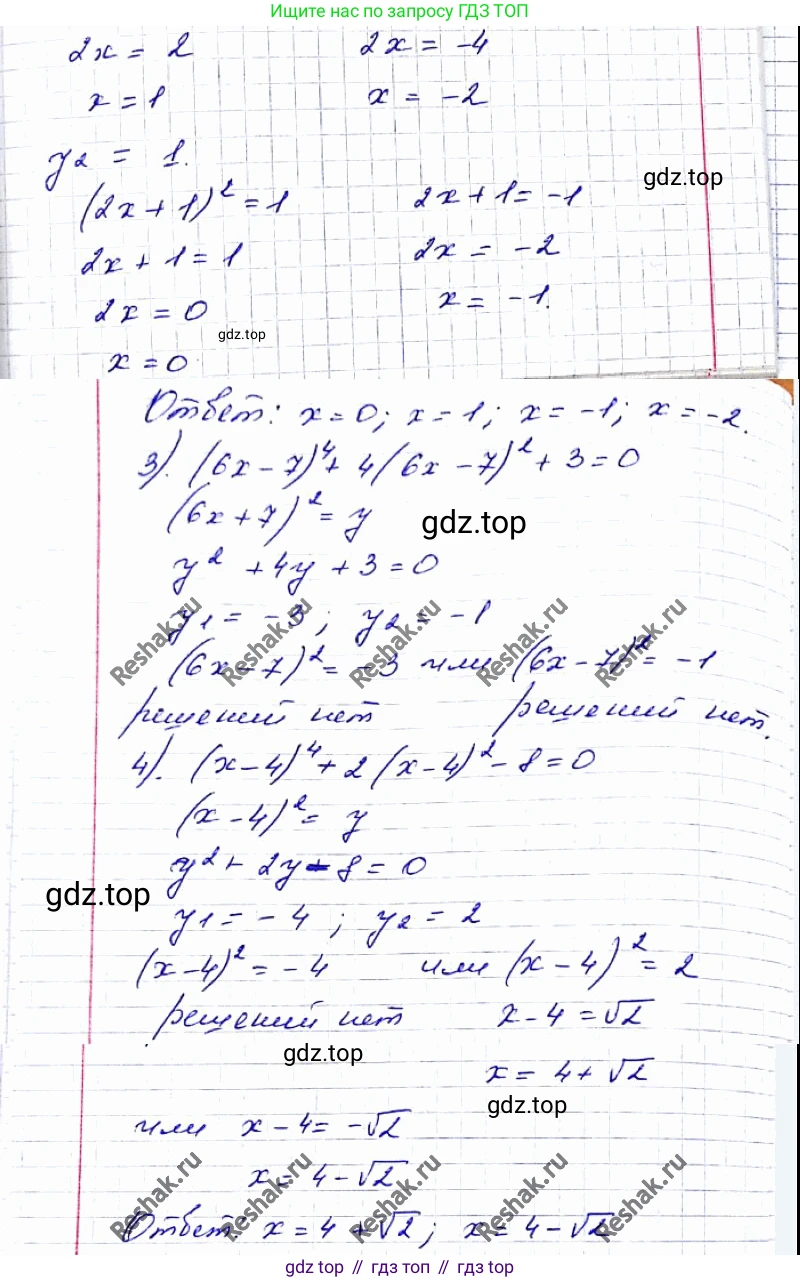 Ищите нас по запросу ГДЗ ТОП
2x = 2 2x = -4
x = 1 x = -2
y₂ = 1.
gdz.top
(2x + 1)² = 1 2x + 1 = -1
2x + 1 = 1 2x = -2
2x = 0 x = -1.
gdz.top
x = 0
Ответ: x = 0; x = 1; x = -1; x = -2.
3). (6x - 7)⁴ + 4(6x - 7)² + 3 = 0
(6x + 7)² = y
gdz.top
y² + 4y + 3 = 0
y₁ = -3; y₂ = -1
Reshak.ru Reshak.ru Reshak.ru Reshak.ru Reshak.ru
(6x - 7)² = -3 или (6x - 7)² = -1
решений нет решений нет.
4). (x - 4)⁴ + 2(x - 4)² - 8 = 0
(x - 4)² = y
y² + 2y - 8 = 0
gdz.top
y₁ = -4; y₂ = 2
(x - 4)² = -4 или (x - 4)² = 2
решений нет x - 4 = √2
gdz.top
x = 4 + √2
gdz.top
или x - 4 = -√2
x = 4 - √2
Reshak.ru Reshak.ru Reshak.ru Reshak.ru Reshak.ru
Ответ: x = 4 + √2; x = 4 - √2
gdz top // гдз топ // gdz top